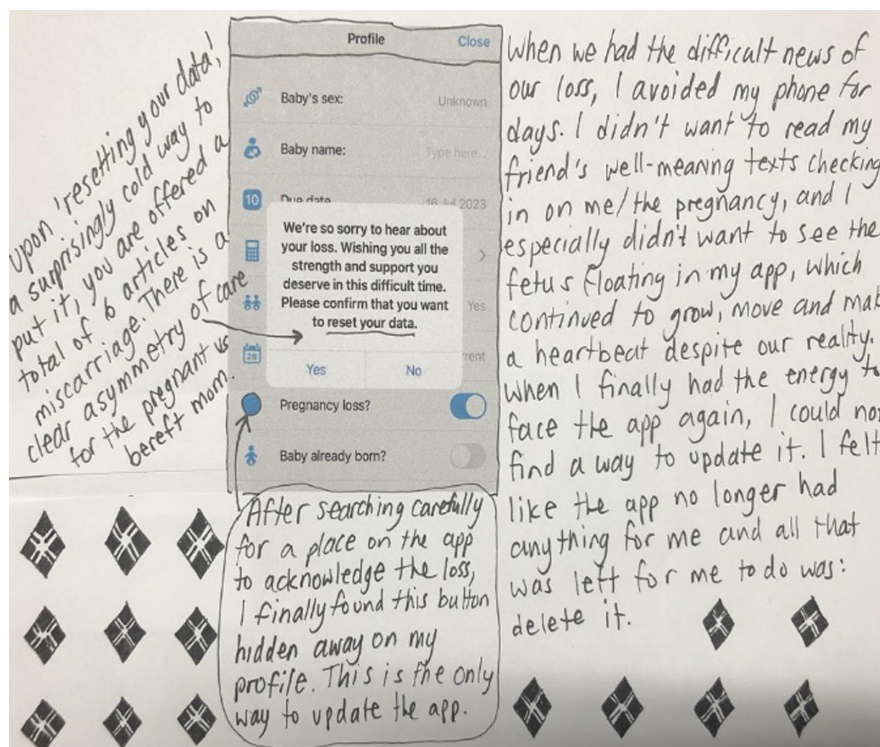 upon 'resetting your data,'
a surprisingly cold way to
put it, you are offered a
total of 6 articles on
miscarriage. There is a
clear asymmetry of care
for the pregnant vs
bereft mom.
Profile
Close
Baby's sex:
Unknown
Baby name:
Type here...
10
Due date
16 Jul 2023
We're so sorry to hear about
your loss. Wishing you all the
strength and support you
deserve in this difficult time.
Please confirm that you want
to reset your data.
Yes
No
Yes
28
rent
Pregnancy loss?
Baby already born?
After searching carefully
for a place on the app
to acknowledge the loss,
I finally found this button
hidden away on my
profile. This is the only
way to update the app.
When we had the difficult news of
our loss, I avoided my phone for
days. I didn't want to read my
friend's well-meaning texts checking
in on me/the pregnancy, and I
especially didn't want to see the
fetus floating in my app, which
continued to grow, move and mak
a heartbeat despite our reality.
When I finally had the energy to
face the app again, I could not
find a way to update it. I felt
like the app no longer had
anything for me and all that
was left for me to do was:
delete it.